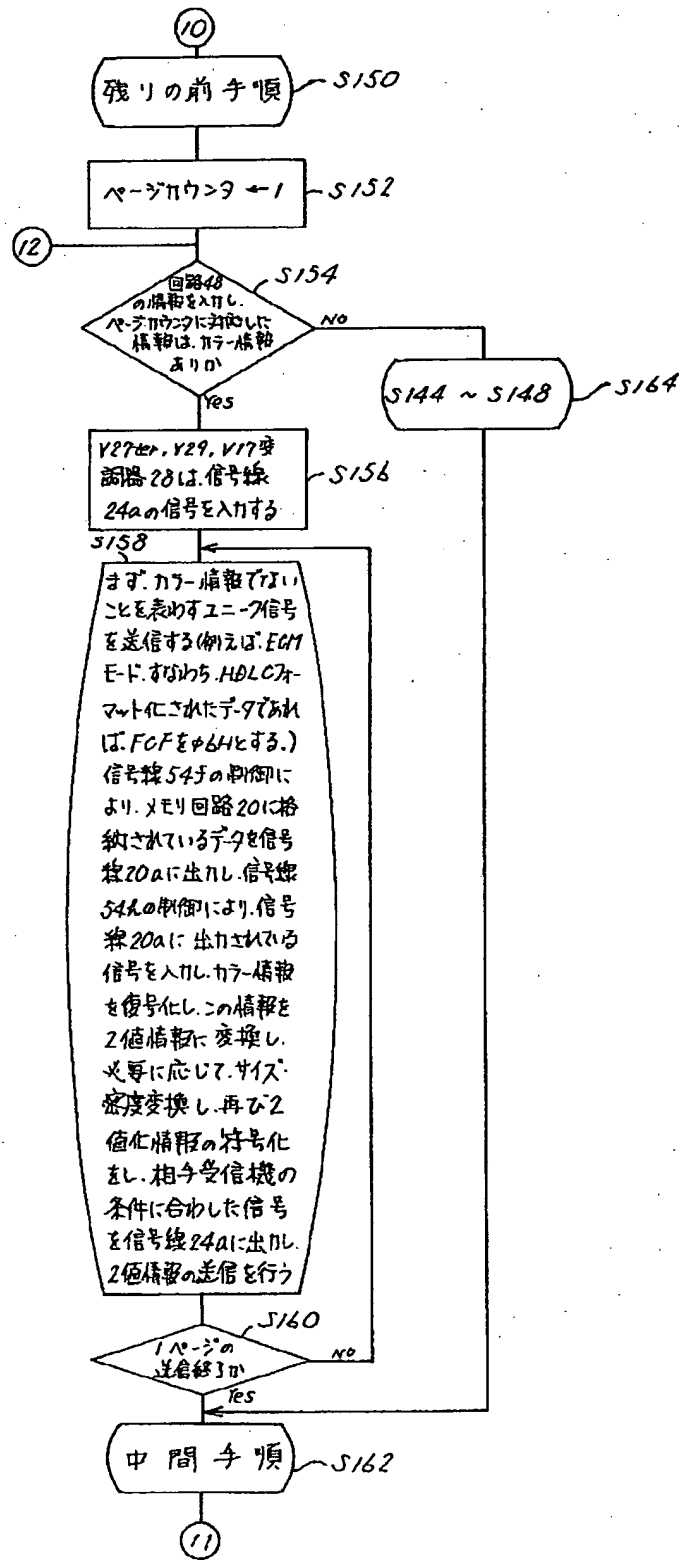 10
残りの前手順
S150
ページカウンタ←1
S152
12
S154
回路48
の情報を入力し、
ページカウンタに対応した
情報は、カラー情報
ありか
NO
Yes
S144 ~ S148
S164
V27ter, V29, V17変
調器28は、信号線
24aの信号を入力する
S156
S158
まず、カラー情報でない
ことを表わすユニーク信号
を送信する(例えば、ECM
モード、すなわち、HDLCフォー
マット化されたデータであれ
ば、FCFをφ6Hとする。)
信号線54fの制御に
より、メモリ回路20に格
納されているデータを信号
線20aに出力し、信号線
54hの制御により、信号
線20aに出力されている
信号を入力し、カラー情報
を復号化し、この情報を
2値情報に変換し、
必要に応じて、サイズ・
密度変換し、再び2
値化情報の符号化
をし、相手受信機の
条件に合わした信号
を信号線24aに出力し、
2値情報の送信を行う
S160
1ページの
送信終了か
NO
Yes
中間手順
S162
11